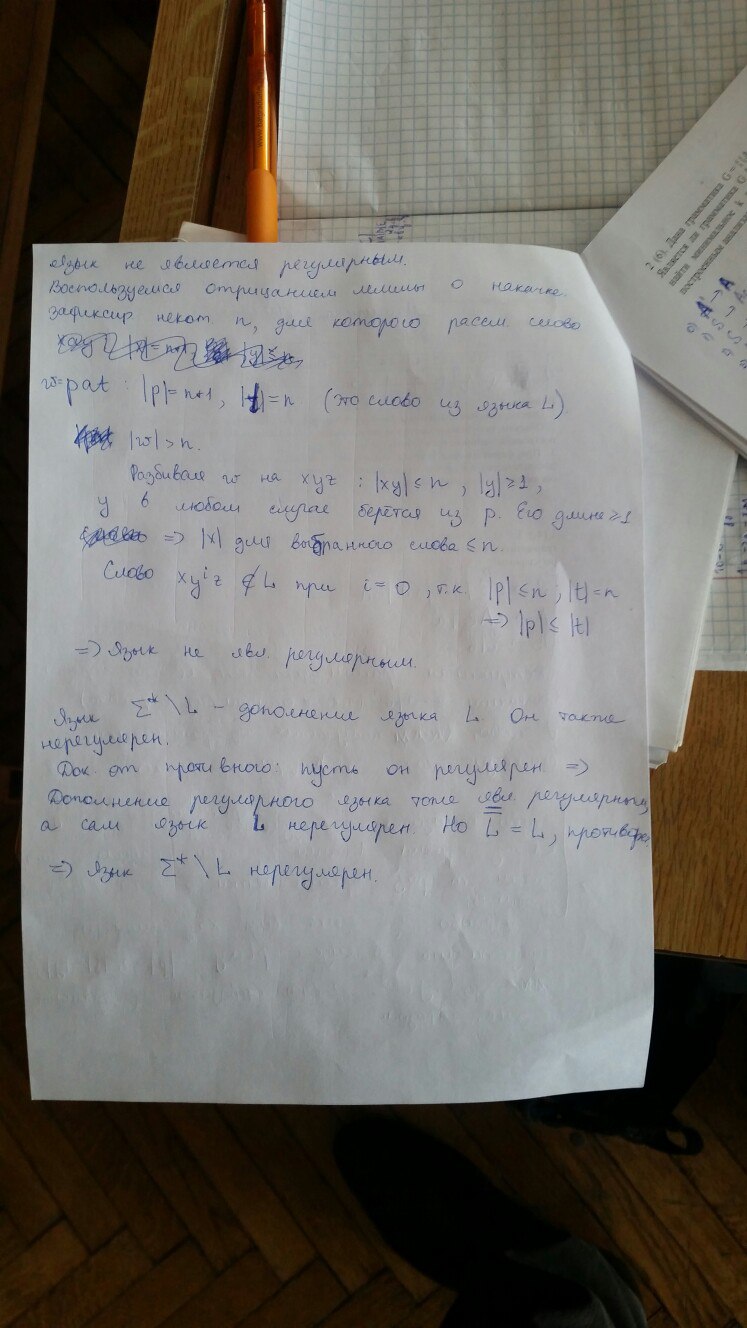 Язык не является регулярным.
Воспользуемся отрицанием леммы о накачке.
Зафиксир некот. n, для которого рассм. слово
w=pat : |p|=n+1, |t|=n (это слово из языка L)
|w|>n.
Разбивая w на xyz : |xy|≤n, |y|≥1,
y в любом случае берётся из p. Его длина≥1
=> |x| для выбранного слова ≤n.
Слово xyⁱz ∉ L при i=0, т.к. |p|≤n; |t|=n
=> |p|≤|t|
=> Язык не явл. регулярным.
Язык Σ*\L – дополнение языка L. Он также
нерегулярен.
Док. от противного: пусть он регулярен =>
Дополнение регулярного языка тоже явл. регулярным,
а сам язык L нерегулярен. Но L̿ = L, противореч
=> Язык Σ*\L нерегулярен.
2 (6). Дана грамматика G = {
Является ли грамматика G
найти минимальное k
построенным